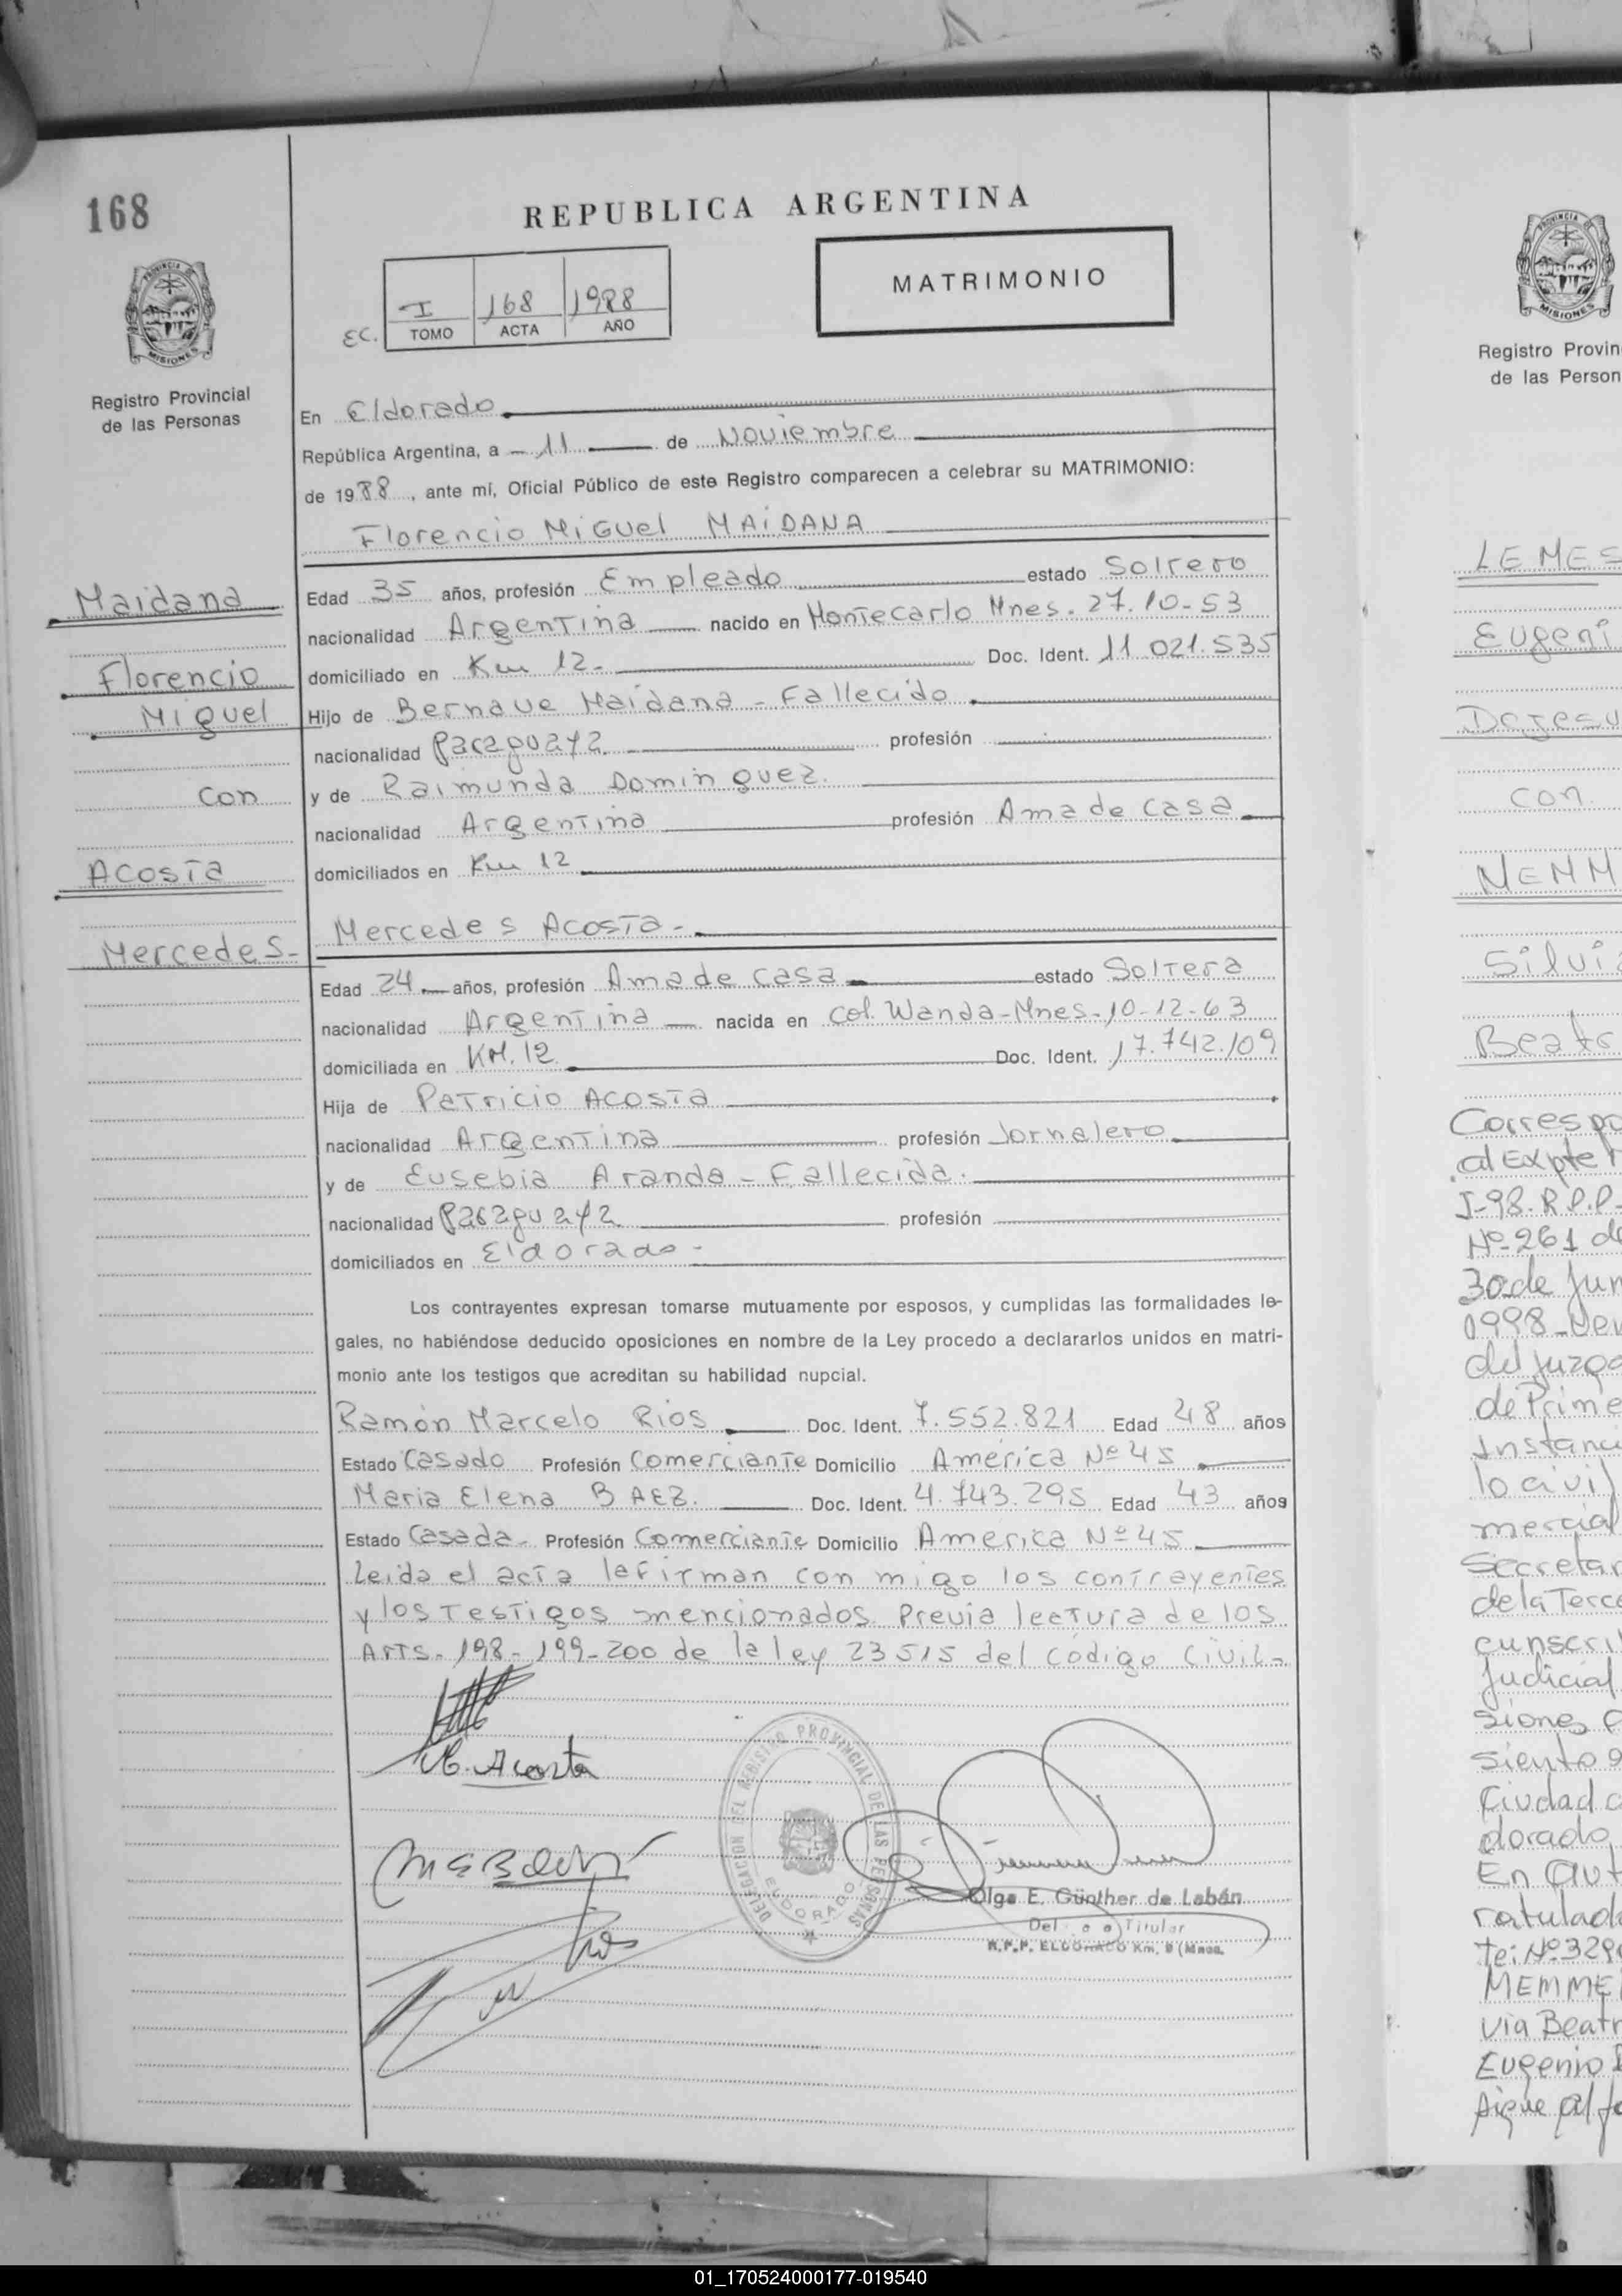 168
REPUBLICA ARGENTINA
PROVINCIA DE
MISIONES
Registro Provincial
de las Personas
I 168 1988
EC. TOMO ACTA AÑO
MATRIMONIO
En Eldorado
República Argentina, a - 11 de Noviembre
de 1988, ante mí, Oficial Público de este Registro comparecen a celebrar su MATRIMONIO:
Florencio Miguel MAIDANA
Maidana
Florencio
Miguel
con
Acosta
Mercedes-
Edad 35 años, profesión Empleado estado Soltero
nacionalidad Argentina nacido en Montecarlo Mnes. 27.10-53
domiciliado en Km 12- Doc. Ident. 11.021.535
Hijo de Bernave Maidana - Fallecido
nacionalidad Paraguaya profesión
y de Raimunda Dominguez.
nacionalidad Argentina profesión Ama de casa
domiciliados en Km 12
Mercedes Acosta-
Edad 24 años, profesión Ama de casa estado Soltera
nacionalidad Argentina nacida en Col. Wanda-Mnes-10-12-63
domiciliada en KM.12 Doc. Ident. 17.742.109
Hija de Patricio Acosta
nacionalidad Argentina profesión Jornalero
y de Eusebia Aranda - Fallecida.
nacionalidad Paraguaya profesión
domiciliados en Eldorado -
Los contrayentes expresan tomarse mutuamente por esposos, y cumplidas las formalidades le-
gales, no habiéndose deducido oposiciones en nombre de la Ley procedo a declararlos unidos en matri-
monio ante los testigos que acreditan su habilidad nupcial.
Ramón Marcelo Rios Doc. Ident. 7.552.821 Edad 48 años
Estado Casado Profesión Comerciante Domicilio América Nº 45
Maria Elena BAEZ. Doc. Ident. 4.743.295 Edad 43 años
Estado Casada- Profesión Comerciante Domicilio America Nº 45
Leida el acta la firman con migo los contrayentes
y los testigos mencionados. Previa lectura de los
Arts. 198-199-200 de la ley 23515 del código Civil-
M. Acosta
DELEGACION DEL REGISTRO PROVINCIAL DE LAS PERSONAS
ELDORADO
Olga E. Günther de Labán
Titular
R.P.P. ELDORADO Km. 9 (Mnes.
Registro Provin
de las Person
LEMES
Eugeni
con
Silvi
Beatr
Correspo
al Expte
J-98. R.P.P-
Nº 261 de
30 de Jun
1998-
del Juzga
de Prime
Instanci
lo civil
mercial
Secretar
de la Terce
cunscri
Judicial
siones
siento
Ciudad
dorado,
En Aut
ratulado
te: Nº 329
MEMME
via Beatr
Eugenio
Sigue al fo
01_170524000177-019540